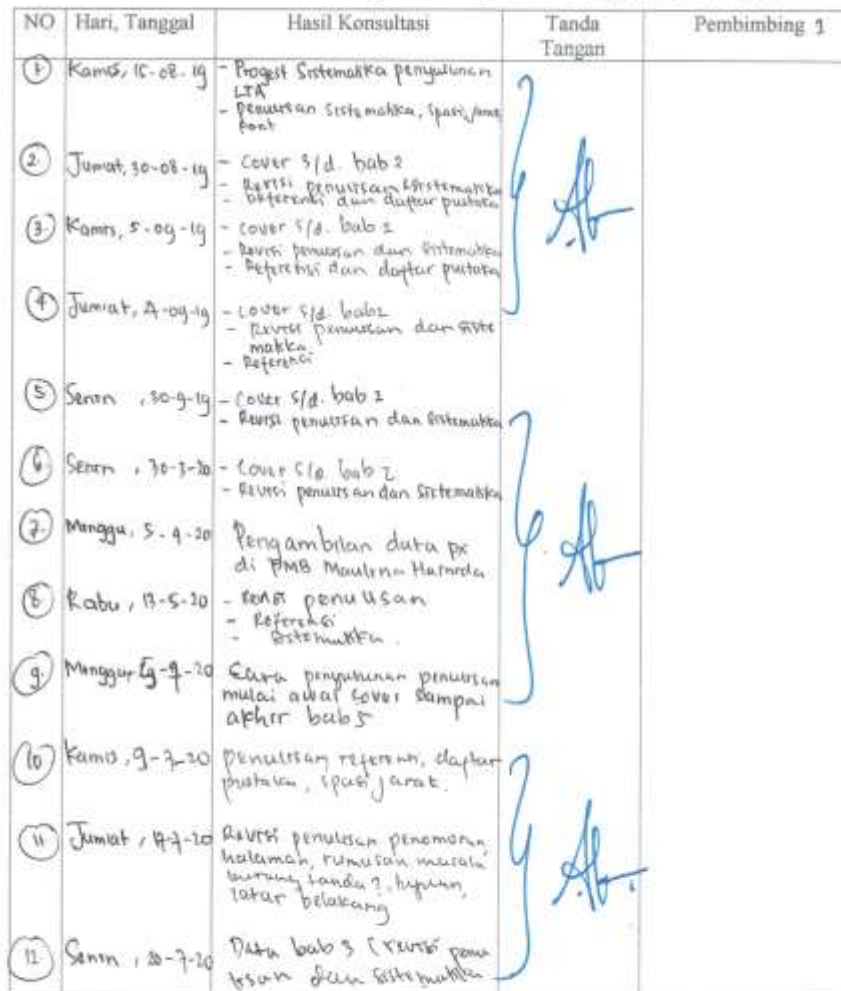 NO Hari, Tanggal Hasil Konsultasi Tanda Tangan Pembimbing 1
1 Kamis, 15-08-19 - Progest Sistematika penyusunan
LTA
- penulisan sistematika, spasi, jarak
font
2. Jumat, 30-08-19 - Cover s/d. bab 2
- Revisi penulisan sistematika
- Referensi dan daftar pustaka
3. Kamis, 5-09-19 - cover s/d. bab 2
- Revisi penulisan dan sistematika
- Referensi dan daftar pustaka
4 Jumat, -09-19 - cover s/d. bab2
- Revisi penulisan dan siste
matika
- Referensi
5 Senin , 30-9-19 - Cover s/d. bab 2
- Revisi penulisan dan sistematika
6. Senin , 30-3-20 - Cover s/d. bab 2
- Revisi penulisan dan Sistematika
7. Minggu, 5-4-20 Pengambilan data px
di PMB Maulina Hasnida
8. Rabu, 13-5-20 - Revisi penulisan
- Referensi
- Sistematika.
9. Minggu, Cara penyusunan penulisan
mulai awal cover sampai
akhir bab 5
10 Kamis, 9-7-20 penulisan referensi, daftar
pustaka, spasi jarak.
11 Jumat, 17-7-20 Revisi penulisan penomoran
halaman, rumusan masala
kurang tanda ?, tujuan,
latar belakang
12. Senin , 20-7-20 Data bab 3 (revisi penu
lisan dan sistematika